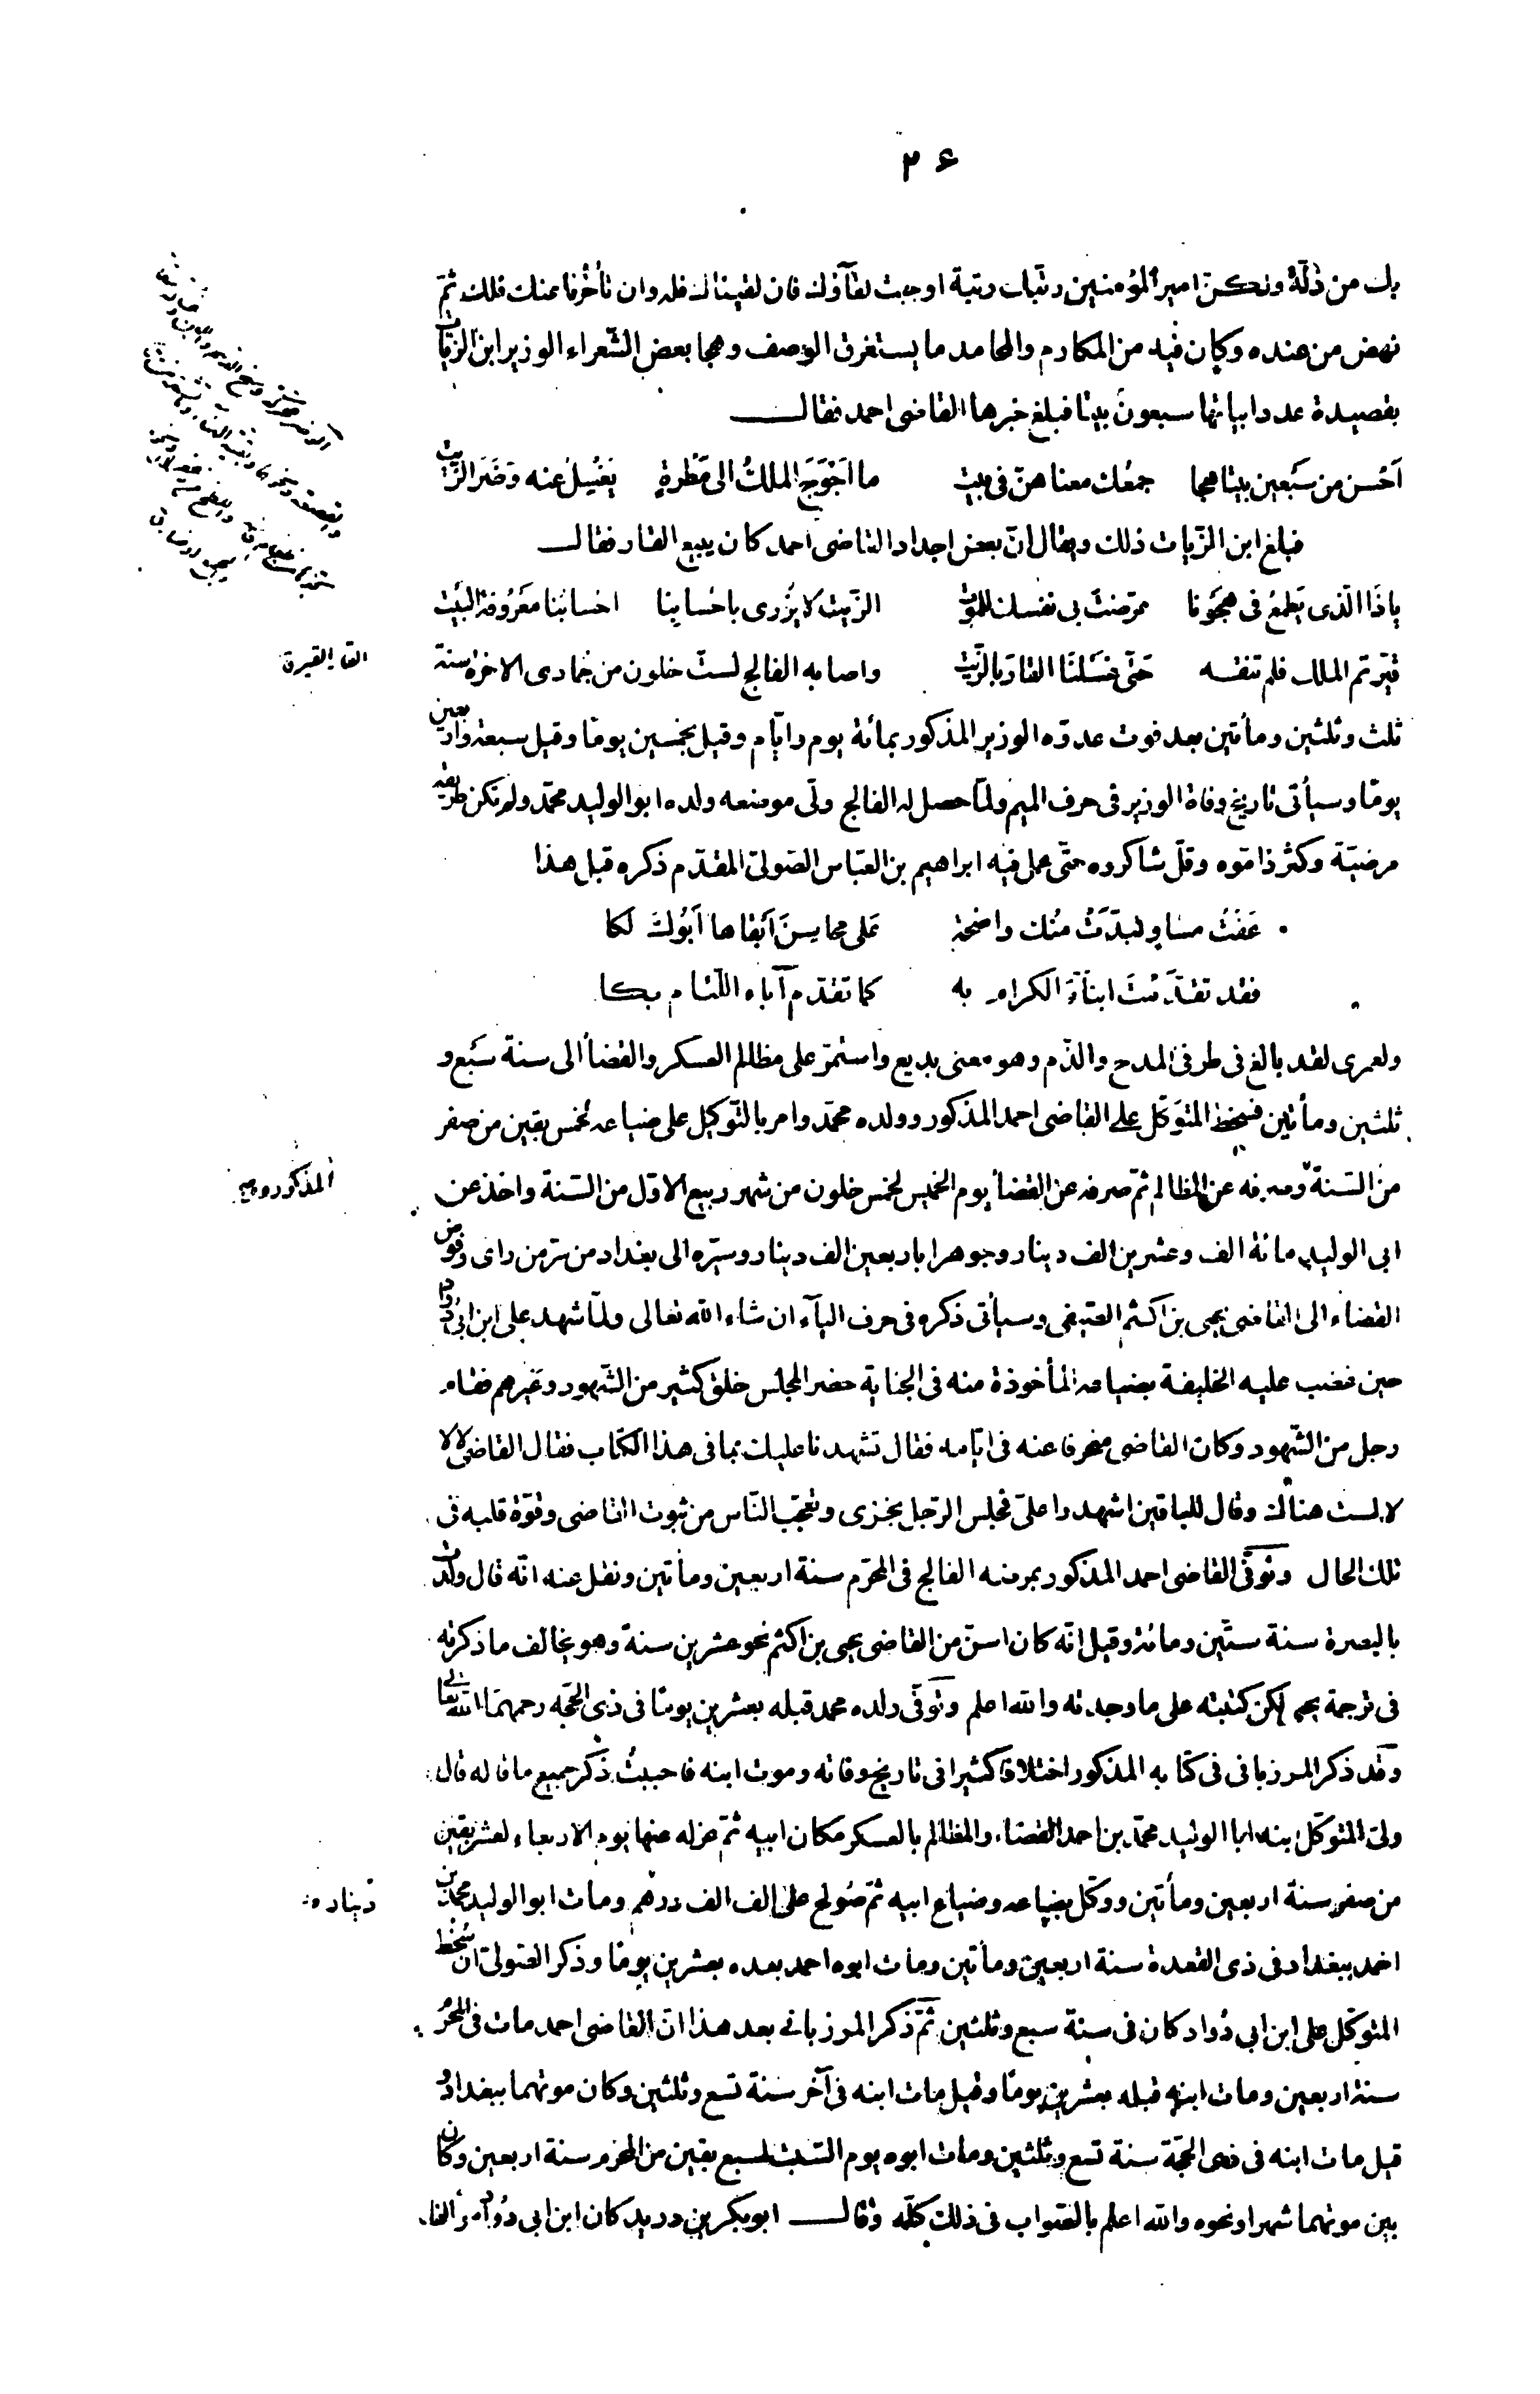 ٢٦
بك من ذلّة ولكن امير المؤمنين رتّبك رتبة اوجبت لقآؤك فان لقيناك فله وان تأخّرنا عنك فلك ثمّ
نهض من عنده وكان فيه من المكارم والمحامد ما يستغرق الوصف وهجا بعض الشّعراء الوزير ابن الزيّات
بقصيدة عدد ابياتها سبعون بيتا فبلغ خبرها القاضى احمد فقال
اَحْسن من سَبعين بيتا هجا جمعُك معناهنّ فى بيت ما اَحْوَجَ الملكُ الى مَطْرةٍ يَغْسِلُ عنه وَضَرَ الزَّيت
فبلغ ابن الزّيات ذلك ويقال انّ بعض اجداد القاضى احمد كان يبيع القار فقال
يا ذَا الّذى يَطمعُ فى هجَونا عرّضتَ بى نفسك للموت الزّيت لا يُزْرى باحْسابِنا احسابُنا مَعرُوفة البَيت
قيّرتم الملك فلم تنقـه حَتّى غسَلنَا القارَ بالزّيت واصابه الفالج لستّ خلون من جُمادى الاخرة سنة
القار القيرة
ثلث وثلثين ومأتين بعد فوت عدوّه الوزير المذكور بمائة يوم وايّام وقيل بخمسين يومًا وقيل سبعة واربعين
يومًا وسيأتى تاريخ وفاة الوزير فى حرف الميم ولمّا حصل له الفالج ولّى موضعه ولده ابو الوليد محمّد ولم تكن طريقته
مرضيّة وكثر ذامّوه وقلّ شاكروه حتّى عمل فيه ابراهيم بن العبّاس الصّولىّ المقدّم ذكره قبل هذا
عَفَتْ مساوٍ تبدّتْ منْك واضحة عَلى محاسِنَ اَبقاها اَبُوكَ لَكا
فقد تقدّمْتَ ابنآءَ الكرام به كما تقدّم آباء اللّئام بكا
ولعمرى لقد بالغ فى طرفى المدح والذّم وهو معنى بديع واستمرّ على مظالم العسكر والقضآ الى سنة سَبع و
ثلثين ومأتين فسخط المتوكّل على القاضى احمد المذكور وولده محمّد وامر بالتّوكيل على ضياعه لخمس بقين من صفر
من السّنة وصرفه عن المظالم ثمّ صرفه عن القضآ يوم الخميس لخمس خلون من شهر ربيع الاوّل من السّنة واخذ عن
ابى الوليد مائة الف وعشرين الف دينار وجوهرا باربعين الف دينار وسيّره الى بغداد من سرّ من راى وفوّض
القضاء الى القاضى يحيى بن اكثم الصّيفى وسيأتى ذكره فى حرف اليآء ان شاء الله تعالى ولمّا شهد على ابن ابى دُواد
حين غضب عليه الخليفة بضياعه المأخوذة منه فى الجناية حضر المجلس خلق كثير من الشّهود وغيرهم فقام
رجل من الشّهود وكان القاضى منحرفا عنه فى ايّامه فقال تشهدنا عليك بما فى هذا الكتاب فقال القاضى لا لا
لا لست هناك وقال للباقين اشهدوا علىّ فجلس الرّجل بخزى وتعجّب النّاس من ثبوت القاضى وقوّة قلبه فى
تلك الحال وتوفّى القاضى احمد المذكور بمرضه الفالج فى المحرّم سنة اربعين ومأتين ونقل عنه انّه قال ولدت
بالبصرة سنة ستّين ومائة وقيل انّه كان اسنّ من القاضى يحيى بن اكثم نحو عشرين سنة وهو يخالف ما ذكرته
فى ترجمة يحيى لكن كتبته على ما وجدته والله اعلم وتوفّى ولده محمد قبله بعشرين يومًا فى ذى الحجّه رحمهمَا الله تعالى
وقد ذكر المرزبانى فى كتابه المذكور اختلافا كثيرا فى تاريخ وفاته وموت ابنه فاحببتُ ذكر جميع ما قاله قال
ولىّ المتوكّل ابنه ابا الوليد محمّد بن احمد القضاء والمظالم بالعسكر مكان ابيه ثمّ عزله عنها يوم الاربعاء لعشر بقين
من صفر سنة اربعين ومأتين ووكّل بضياعه وضياع ابيه ثمّ صُولح على الف الف درهم ومات ابو الوليد محمد بن
احمد ببغداد فى ذى القعدة سنة اربعين ومأتين ومات ابوه احمد بعده بعشرين يومًا وذكر الصّولىّ ان سُخط
المتوكّل على ابن ابى دُواد كان فى سنة سبع وثلثين ثمّ ذكر المرزبانى بعد هذا انّ القاضى احمد مات فى المحرّم
سنة اربعين ومات ابنه قبله بعشرين يومًا وقيل مات ابنه فى آخر سنة تسع وثلثين وكان موتهما ببغداد و
قيل مات ابنه فى ذى الحجّة سنة تسع وثلثين ومات ابوه يوم السّبت لسبع بقين من المحرّم سنة اربعين وكان
بين موتهما شهرا ونحوه والله اعلم بالصّواب فى ذلك كلّه وقال ابوبكر بن دريد كان ابن ابى دُواد مؤالفا